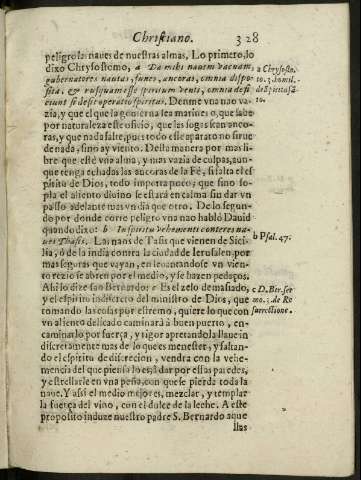 Christiano. 328
peligro las naues de nuestras almas. Lo primero, lo
dixo Chrysostomo, a Da mihi nauem vacuam,
gubernatores nautas, funes, ancoras, omnia dispo-
sita, & nusquam esse spiritum venti, omnia defi
ciunt si desit operatio spiritus. Denme vna nao va
zia, y que el que la gouierna sea marinero, que sabe
por naturaleza este oficio, que las sogas sean anco-
ras, y que nada falte, pues todo este aparato no sirue
de nada, sino ay viento. Desta manera por mas li
bre que esté vna alma, y mas vazia de culpas, aun-
que tenga echadas las ancoras de la Fé, si falta el es
piritu de Dios, todo importa poco; que sino so-
pla el aliento diuino se estará en calma sin dar vn
passo adelante mas virtud que otro. De lo segun-
do por donde corre peligro vna nao habló Dauid
quando dixo: b In spiritu vehementi conteres na-
ues Thasis. Las naos de Tasis que vienen de Sici-
lia, ò de la india contra la ciudad de Ierusalen, por
mas seguras que vayan, en leuantandose vn vien-
to rezio se abren por el medio, y se hazen pedaços.
Ahi lo dize san Bernardo: c Es el zelo demasiado,
y el espiritu indiscreto del ministro de Dios, que
tomando las cosas por estremo, quiere lo que con
vn aliento delicado caminará a buen puerto, en-
caminarlo por fuerça, y rigor apretando la llaue in
discretamente mas de lo que es menester, y faltan-
do el espiritu de discrecion, vendra con la vehe-
mencia del que piensa lo es, à dar por essas paredes,
y estrellarse en vna peña, con que se pierda toda la
naue. Y assi el medio mejor es, mezclar, y templar
la fuerça del vino, con el dulce de la leche. A este
proposito induze nuestro padre S. Bernardo aque
llas
a Chrysosto.
to. 3. homil.
de Spiritu sã
to.
b Psal. 47.
c D. Ber. ser
mo. : de Re
surrectione.